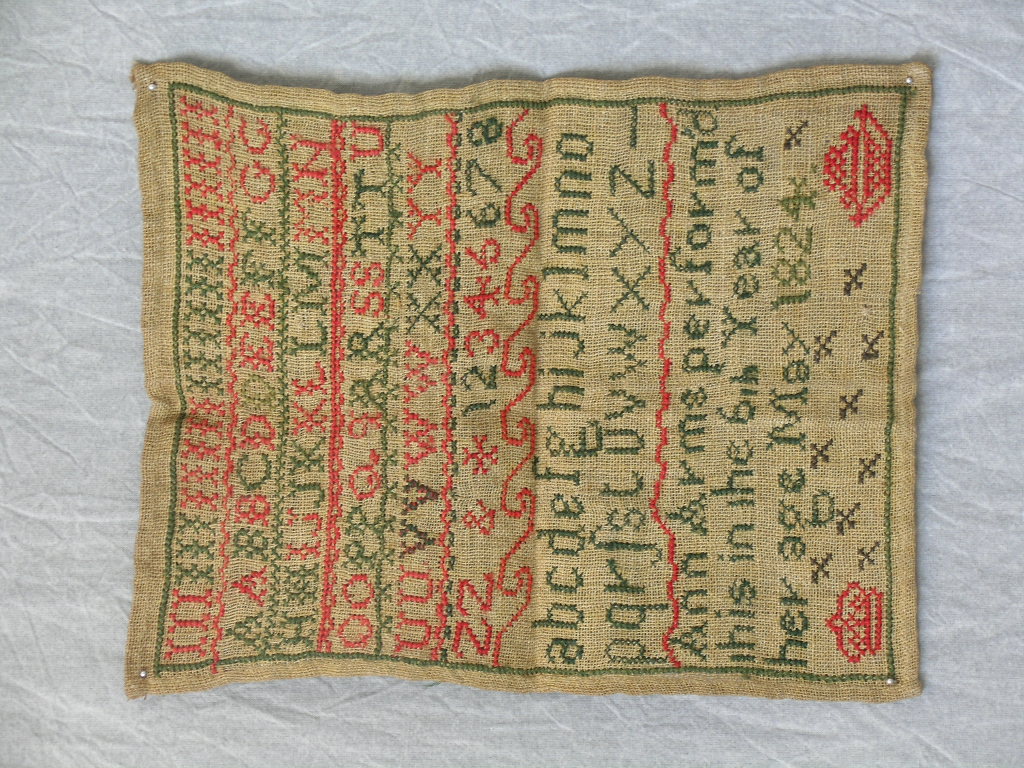 A A B B C D D E E F F G G
H H I J K K L L M M N
O O P P Q Q R R S S T T U
U U V V W W X X Y Y
Z Z & 1 2 3 4 5 6 7 8
a b c d e f g h i j k l m n o
p q r ſ s t u v w x y z
Ann Arms perform'd
this in the 6th Year of
her age May 1824